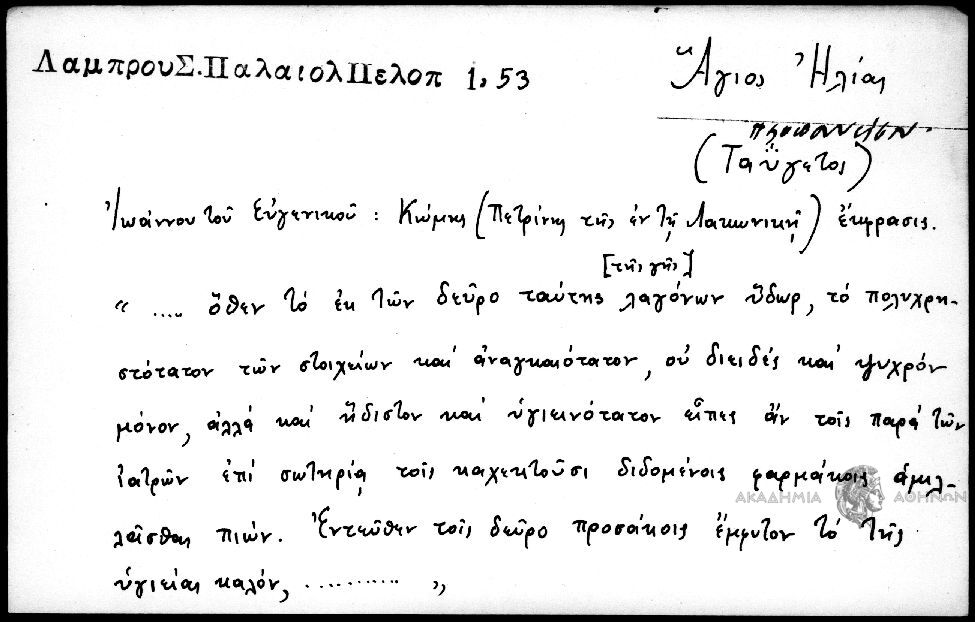 Λαμπρου Σ. Παλαιολ Πελοπ 1, 53
Ἅγιος Ἠλίας
(Ταΰγετος)
Ἰωάννου τοῦ Εὐγενικοῦ : Κώμης (Πετρίνης τῆς ἐν τῇ Λακωνικῇ) ἔκφρασις.
[τῆς γῆς]
" .... ὅθεν τὸ ἐκ τῶν δεῦρο ταύτης λαγόνων ὕδωρ, τὸ πολυχρη-
στότατον τῶν στοιχείων καὶ ἀναγκαιότατον, οὐ διειδές καὶ ψυχρόν
μόνον, ἀλλά καὶ ἥδιστον καὶ ὑγιεινότατον εἶπες ἄν τοῖς παρά τῶν
ἰατρῶν ἐπί σωτηρίᾳ τοῖς καχεκτοῦσι διδομένοις φαρμάκοις ἁμιλ-
λᾶσθαι πιών. Ἐντεῦθεν τοῖς δεῦρο προσοίκοις ἔμφυτον τό τῆς
ὑγιείας καλόν, .......... "
ΑΚΑΔΗΜΙΑ ΑΘΗΝΩΝ